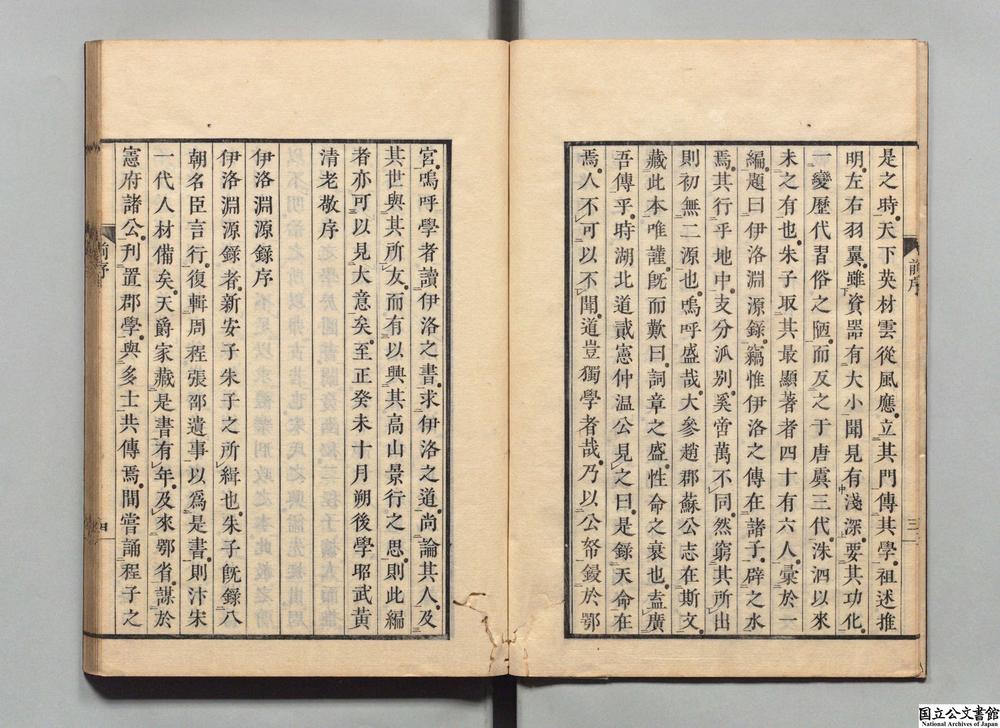 是之時天下英材雲從風應立其門傳其學祖述推
明左右羽翼雖資器有大小聞見有淺深要其功化
一變歷代習俗之陋而反之于唐虞三代洙泗以來
未之有也朱子取其最顯著者四十有六人彙於一
編題曰伊洛淵源錄竊惟伊洛之傳在諸子辟之水
焉其行乎地中支分派別奚啻萬不同然窮其所出
則初無二源也嗚呼盛哉大參趙郡蘇公志在斯文
藏此本唯謹旣而歎曰詞章之盛性命之衰也盍廣
吾傳乎時湖北道貳憲仲温公見之曰是錄天命在
焉人不可以不聞道豈獨學者哉乃以公帑鋟於鄂
前序
三
宮嗚呼學者讀伊洛之書求伊洛之道尚論其人及
其世與其所友而有以興其高山景行之思則此編
者亦可以見大意矣至正癸未十月朔後學昭武黃
清老敬序
伊洛淵源錄序
伊洛淵源錄者新安子朱子之所緝也朱子旣錄八
朝名臣言行復輯周程張邵遺事以爲是書則汴宋
一代人材備矣天爵家藏是書有年及來鄂省謀於
憲府諸公刊置郡學與多士共傳焉間嘗誦程子之
前序
四
国立公文書館
National Archives of Japan